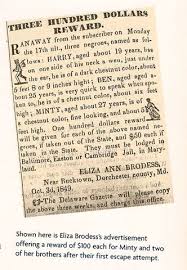 THREE HUNDRED DOLLARS
REWARD.
RANAWAY from the subscriber on Monday
the 17th ult., three negroes, named as fol-
lows: HARRY, aged about 19 years, has
on one side of his neck a wen, just under
the ear, he is of a dark chestnut color, about
5 feet 8 or 9 inches hight; BEN, aged aged a-
bout 25 years, is very quick to speak when spo-
ken to, he is of a chestnut color, about six feet
high; MINTY, aged about 27 years, is of a
chestnut color, fine looking, and about 5
feet high. One hundred dollars reward
will be given for each of the above named
negroes, if taken out of the State, and $50
each if taken in the State. They must
be lodged in Baltimore, Easton or Cambridge Jail, in Mary-
land.
ELIZA ANN BRODESS,
Near Bucktown, Dorchester county, Md.
Oct. 3d, 1849.
The Delaware Gazette will please copy
the above three weeks, and charge this office.
Shown here is Eliza Brodess's advertisement
offering a reward of $100 each for Minty and two
of her brothers after their first escape attempt.